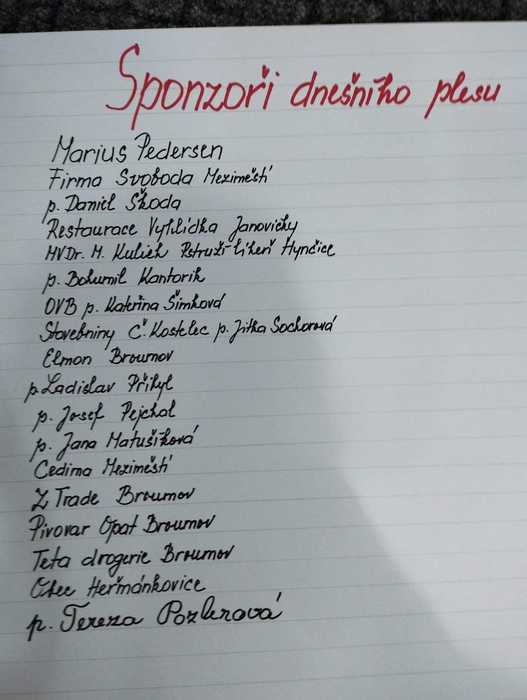 Sponzoři dnešního plesu
Marius Pedersen
Firma Svoboda Meziměstí
p. Daniel Škoda
Restaurace Vyhlídka Janovičky
MVDr. M. Kulich Pstruží líheň Hynčice
p. Bohumil Kantorik
OVB p. Kateřina Šimková
Stavebniny Č. Kostelec p. Jitka Sochorová
Elmon Broumov
p. Ladislav Přibyl
p. Josef Pejchal
p. Jana Matušíková
Cedima Meziměstí
Z Trade Broumov
Pivovar Opat Broumov
Teta drogerie Broumov
Obec Heřmánkovice
p. Tereza